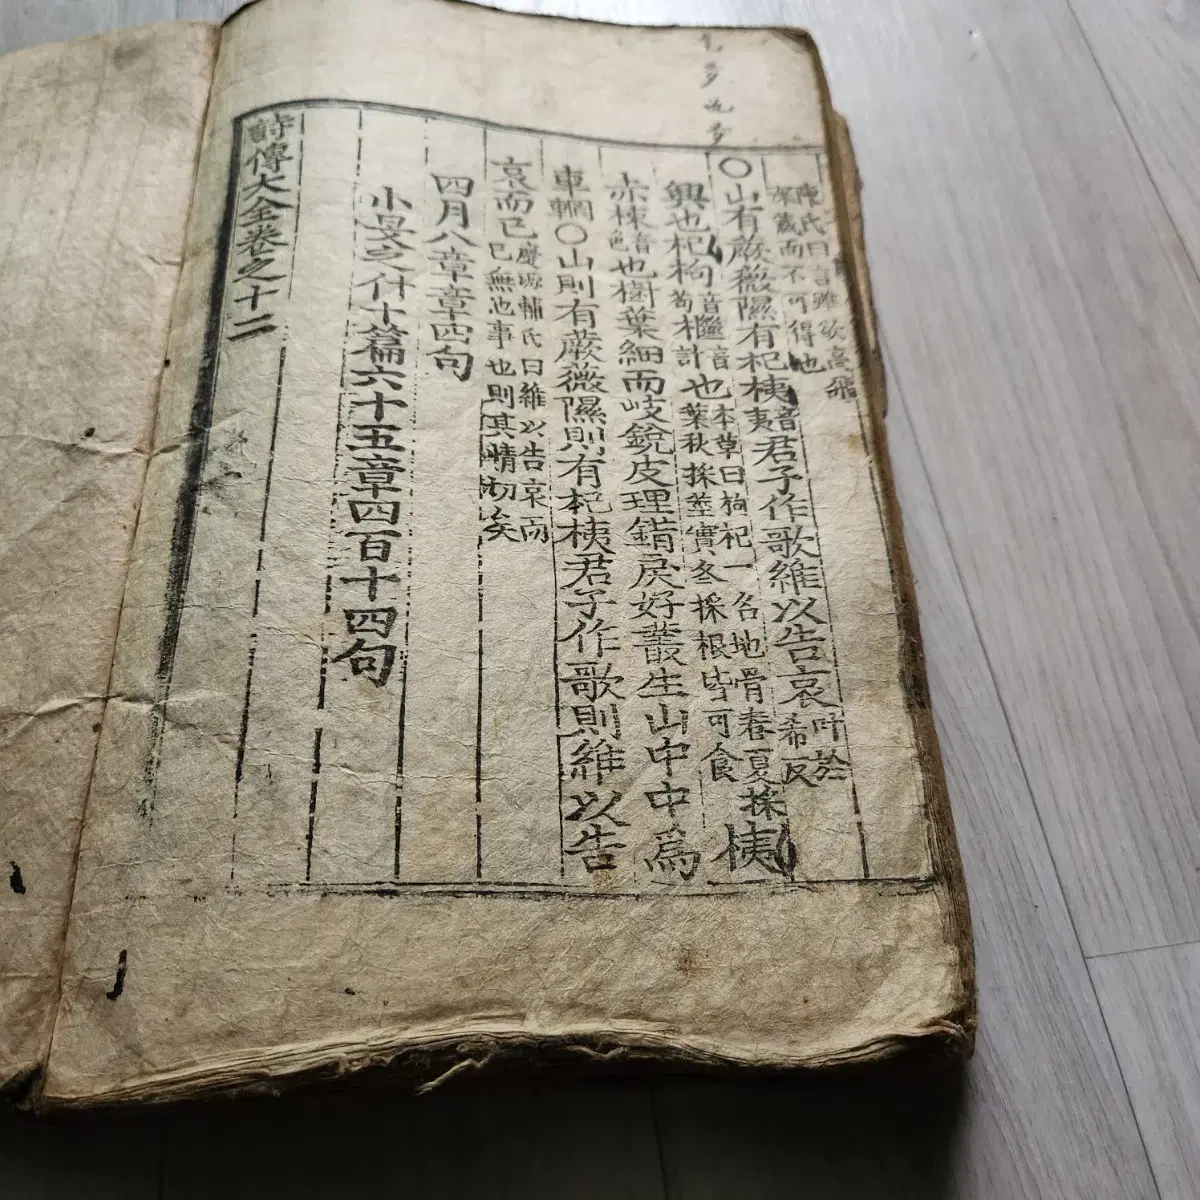 陳氏曰言雖欲高飛
深藏而不可得也
○山有蕨薇隰有杞桋音夷君子作歌維以告哀叶於希反
興也杞枸音苟檵音計也本草曰枸杞一名地骨春夏採葉秋採莖實冬採根皆可食桋
赤楝音色也樹葉細而岐銳皮理錯戾好叢生山中中爲
車輞○山則有蕨薇隰則有杞桋君子作歌則維以告
哀而已慶源輔氏曰維以告哀而已無他事也則其情切矣
四月八章章四句
小旻之什十篇六十五章四百十四句
詩傳大全卷之十二